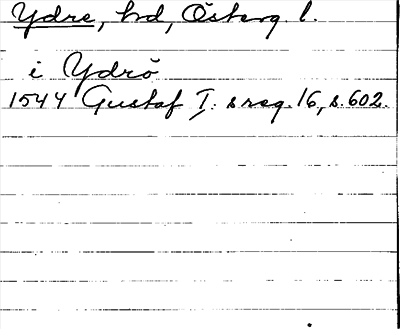 Ydre, hd, Österg. l.
i Ydrö
1544 Gustaf I:s reg. 16, s. 602.